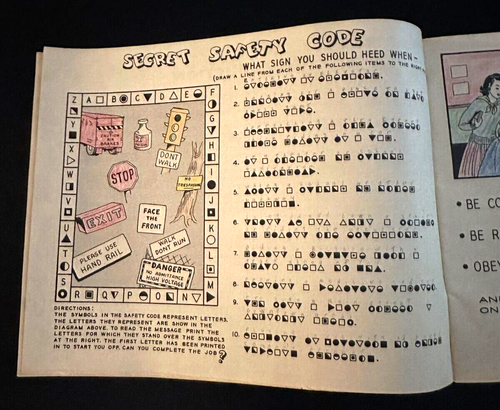 SECRET SAFETY CODE
WHAT SIGN YOU SHOULD HEED WHEN—
(DRAW A LINE FROM EACH OF THE FOLLOWING ITEMS TO THE RIGHT
Z A B C D E F
Y G
X H
W I
V J
U K
T L
S R Q P O N M
CAUTION
AIR
BRAKES
DONT
WALK
STOP
NO
TRESPASSING
EXIT
FACE
THE
FRONT
PLEASE USE
HAND RAIL
WALK
DONT RUN
DANGER
NO ADMITTANCE
HIGH VOLTAGE
DIRECTIONS:
THE SYMBOLS IN THE SAFETY CODE REPRESENT LETTERS.
THE LETTERS THEY REPRESENT ARE SHOWN IN THE
DIAGRAM ABOVE. TO READ THE MESSAGE PRINT THE
LETTERS FOR WHICH THEY STAND OVER THE SYMBOLS
AT THE RIGHT. THE FIRST LETTER HAS BEEN PRINTED
IN TO START YOU OFF. CAN YOU COMPLETE THE JOB?
1.
2.
3.
4.
5.
6.
7.
8.
9.
10.
• BE
• BE
• OBEY
ON